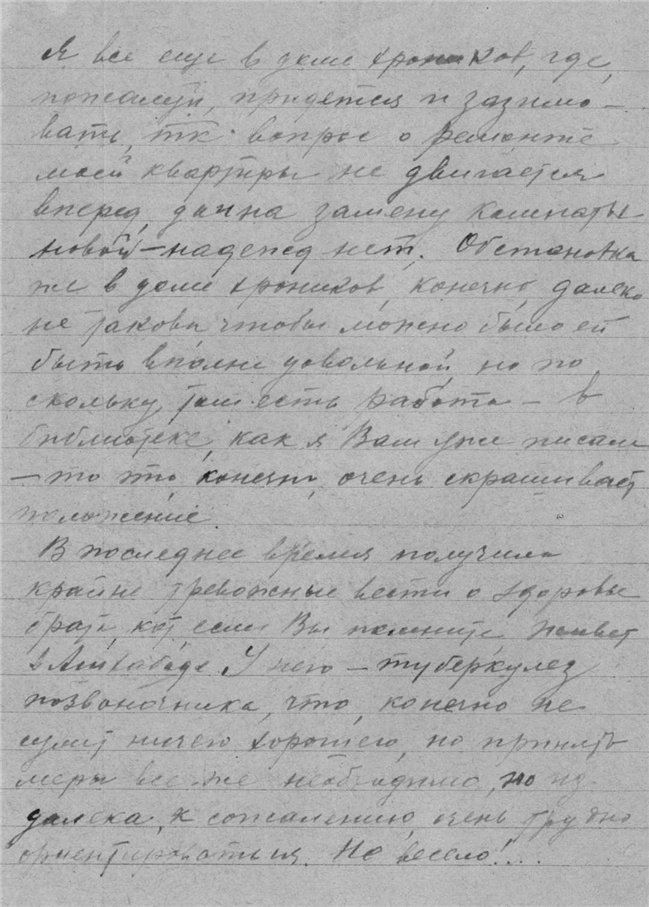 Я все еще в доме хроников, где,
пожалуй, придется и зазимо-
вать, тк. вопрос о ремонте
моей квартиры не двигается
вперед, на замену комнаты
новой – надежд нет. Обстановка
же в доме хроников, конечно, далеко
не такова чтобы можно было ей
быть вполне довольной, но по
скольку там есть работа – в
библиотеке, как я Вам уже писала
– то это, конечно, очень скрашивает
положение.
В последнее время получила
крайне тревожные вести о здоровье
брата, кот, если Вы помните, живет
в Ашхабаде. У него – туберкулез
позвоночника, что, конечно не
сулит ничего хорошего, но принять
меры все же необходимо, но из-
далека, к сожалению, очень трудно
ориентироваться. Не весело!...